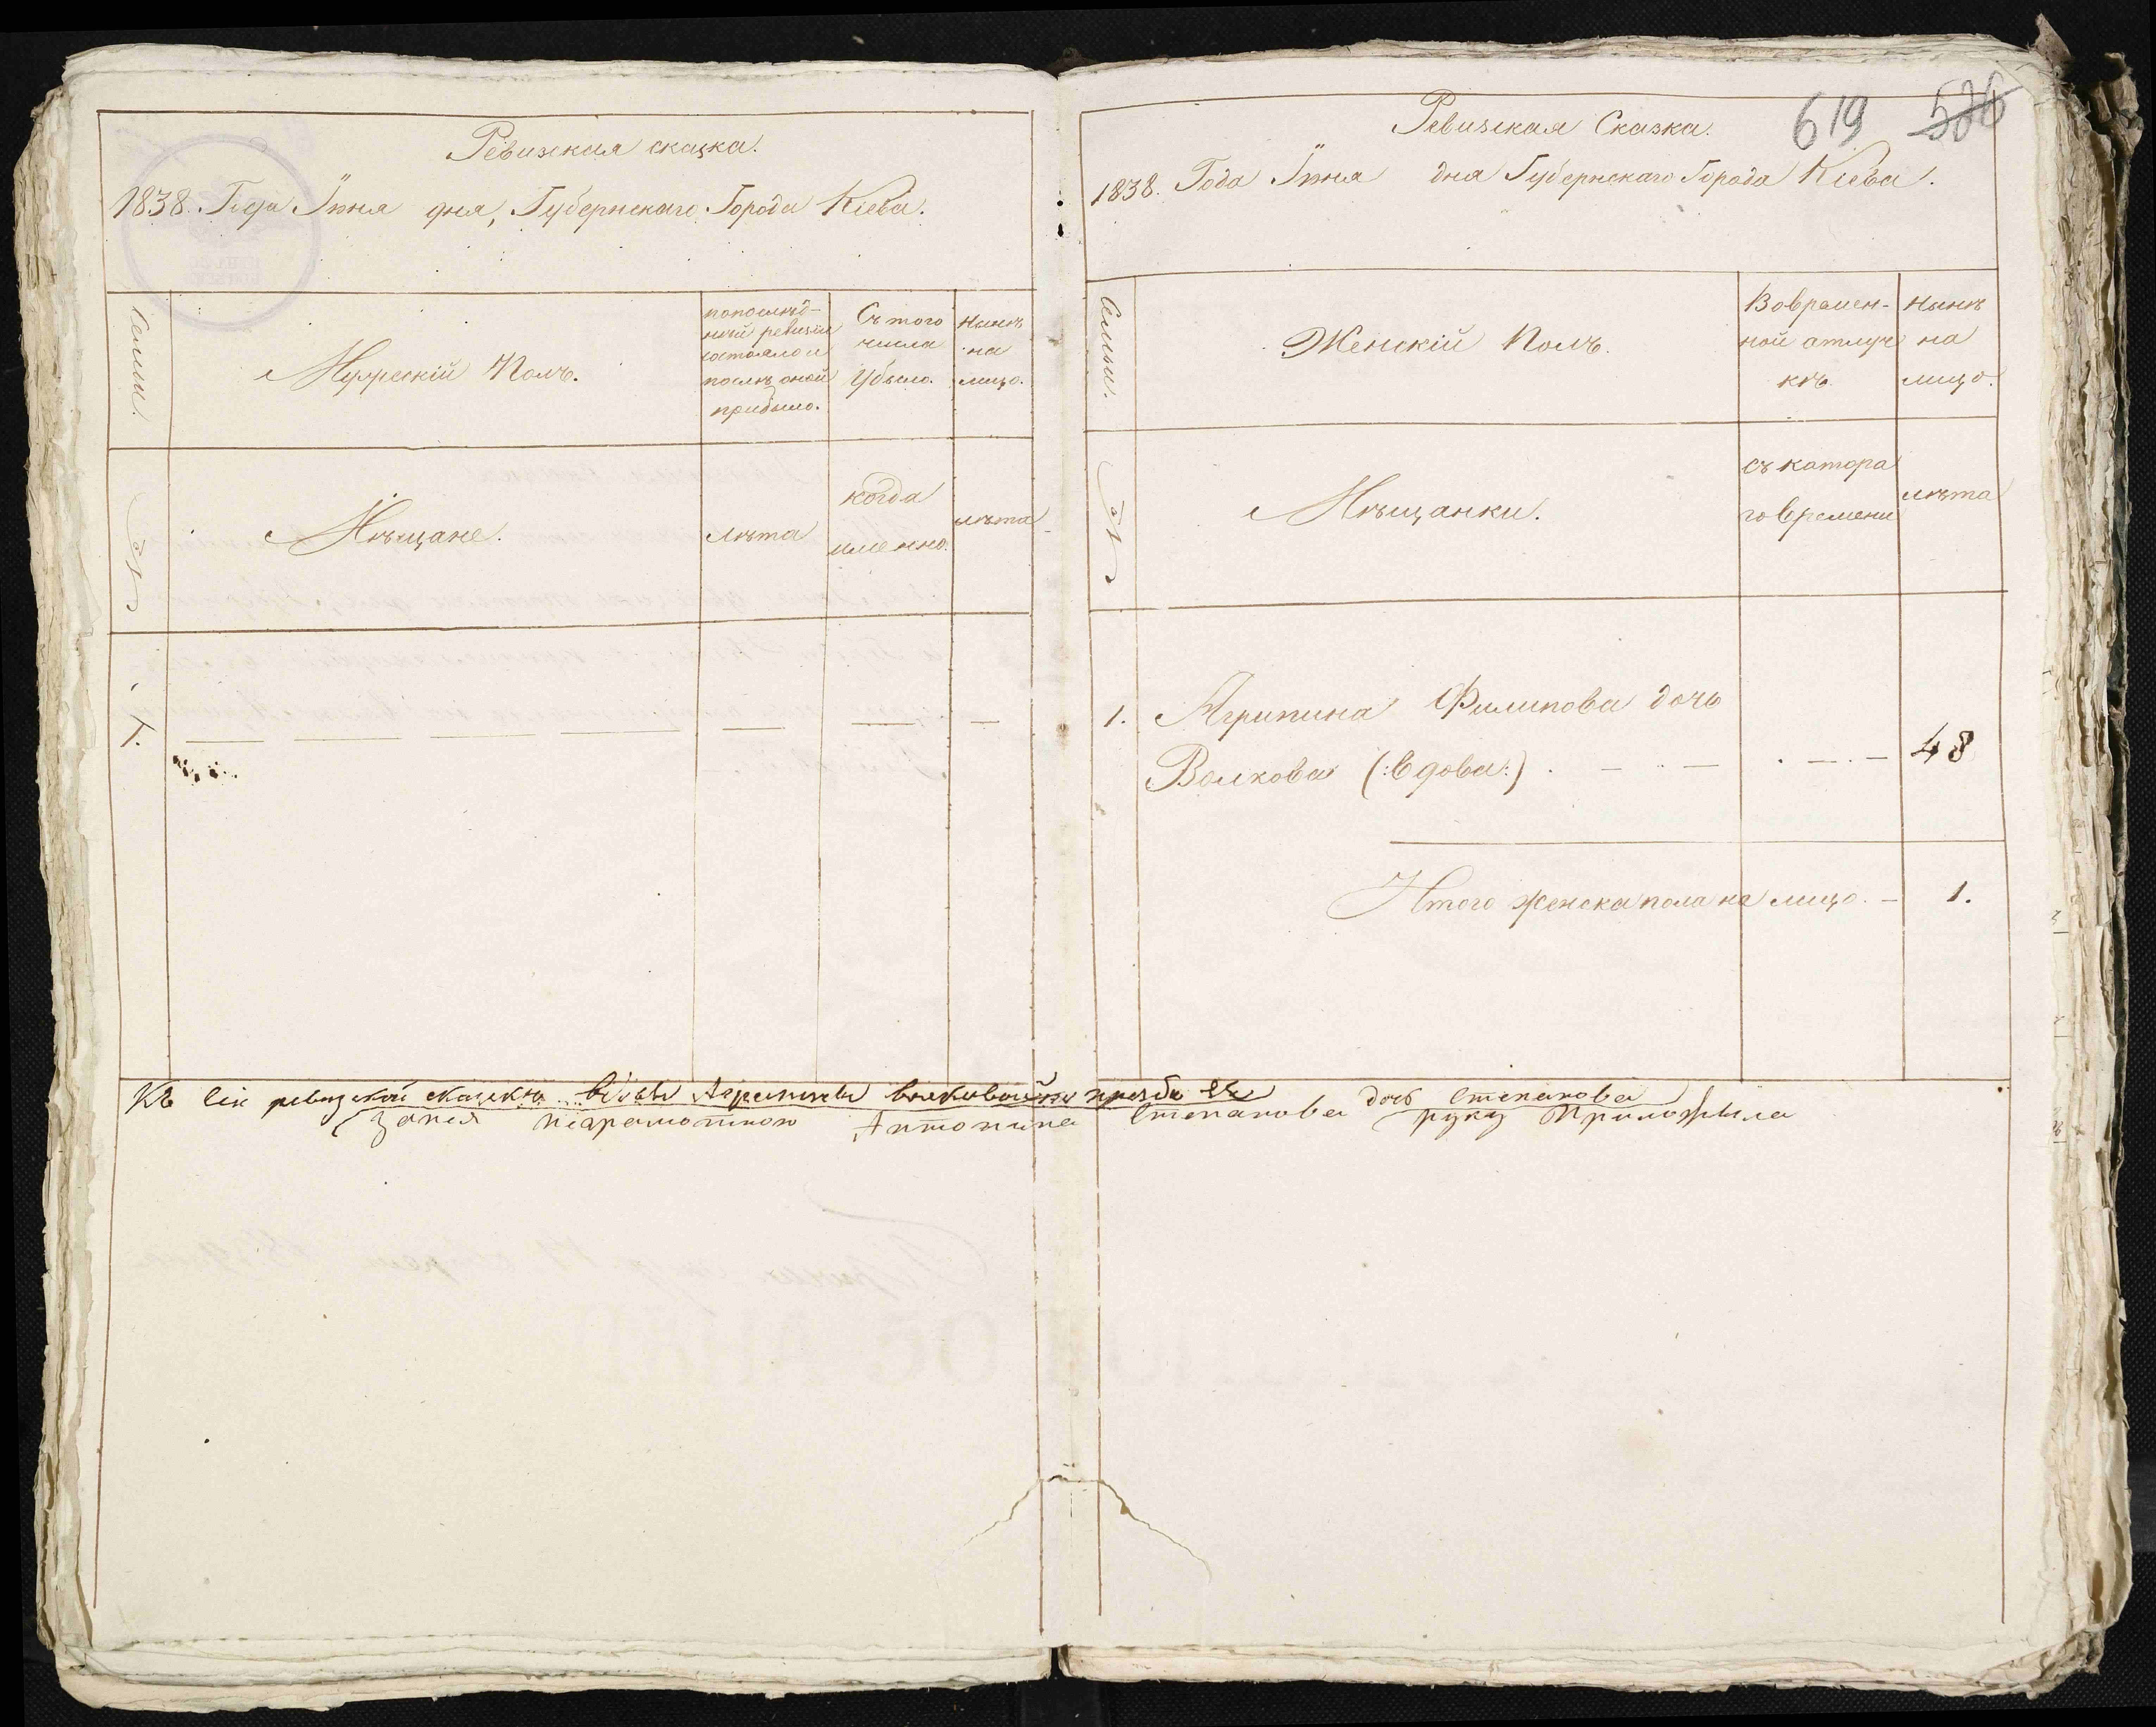 Ревизкая сказка.
1838. Года Іюня дня, Губернскаго Города Кіева.
Семьи.
Мужескій Полъ.
попослѣд-
ней ревизіи
состояло и
послѣ оной
прибыло.
Съ того
числа
убыло.
Нынѣ
на
лицо.
№
Мѣщане.
лѣта
когда
именно.
лѣта
1.
619 586
Ревизская Сказка.
1838. Года Іюня дня Губернскаго Города Кіева.
Семьи.
Женскій Полъ.
Вовремен-
ной атлуч
кѣ.
Нынѣ
на
лицо.
№
Мѣщанки.
съ катора
го времени
лѣта
1. Агрипина Филипова дочь
Волкова (:вдова:) 48
Итого женска пола на лицо. - 1.
Къ сей ревизской сказкѣ вдовы Агрипины Волковой по прозбе ея
дочь Степанова
за нея неграмотною Антонина Степанова руку Приложила